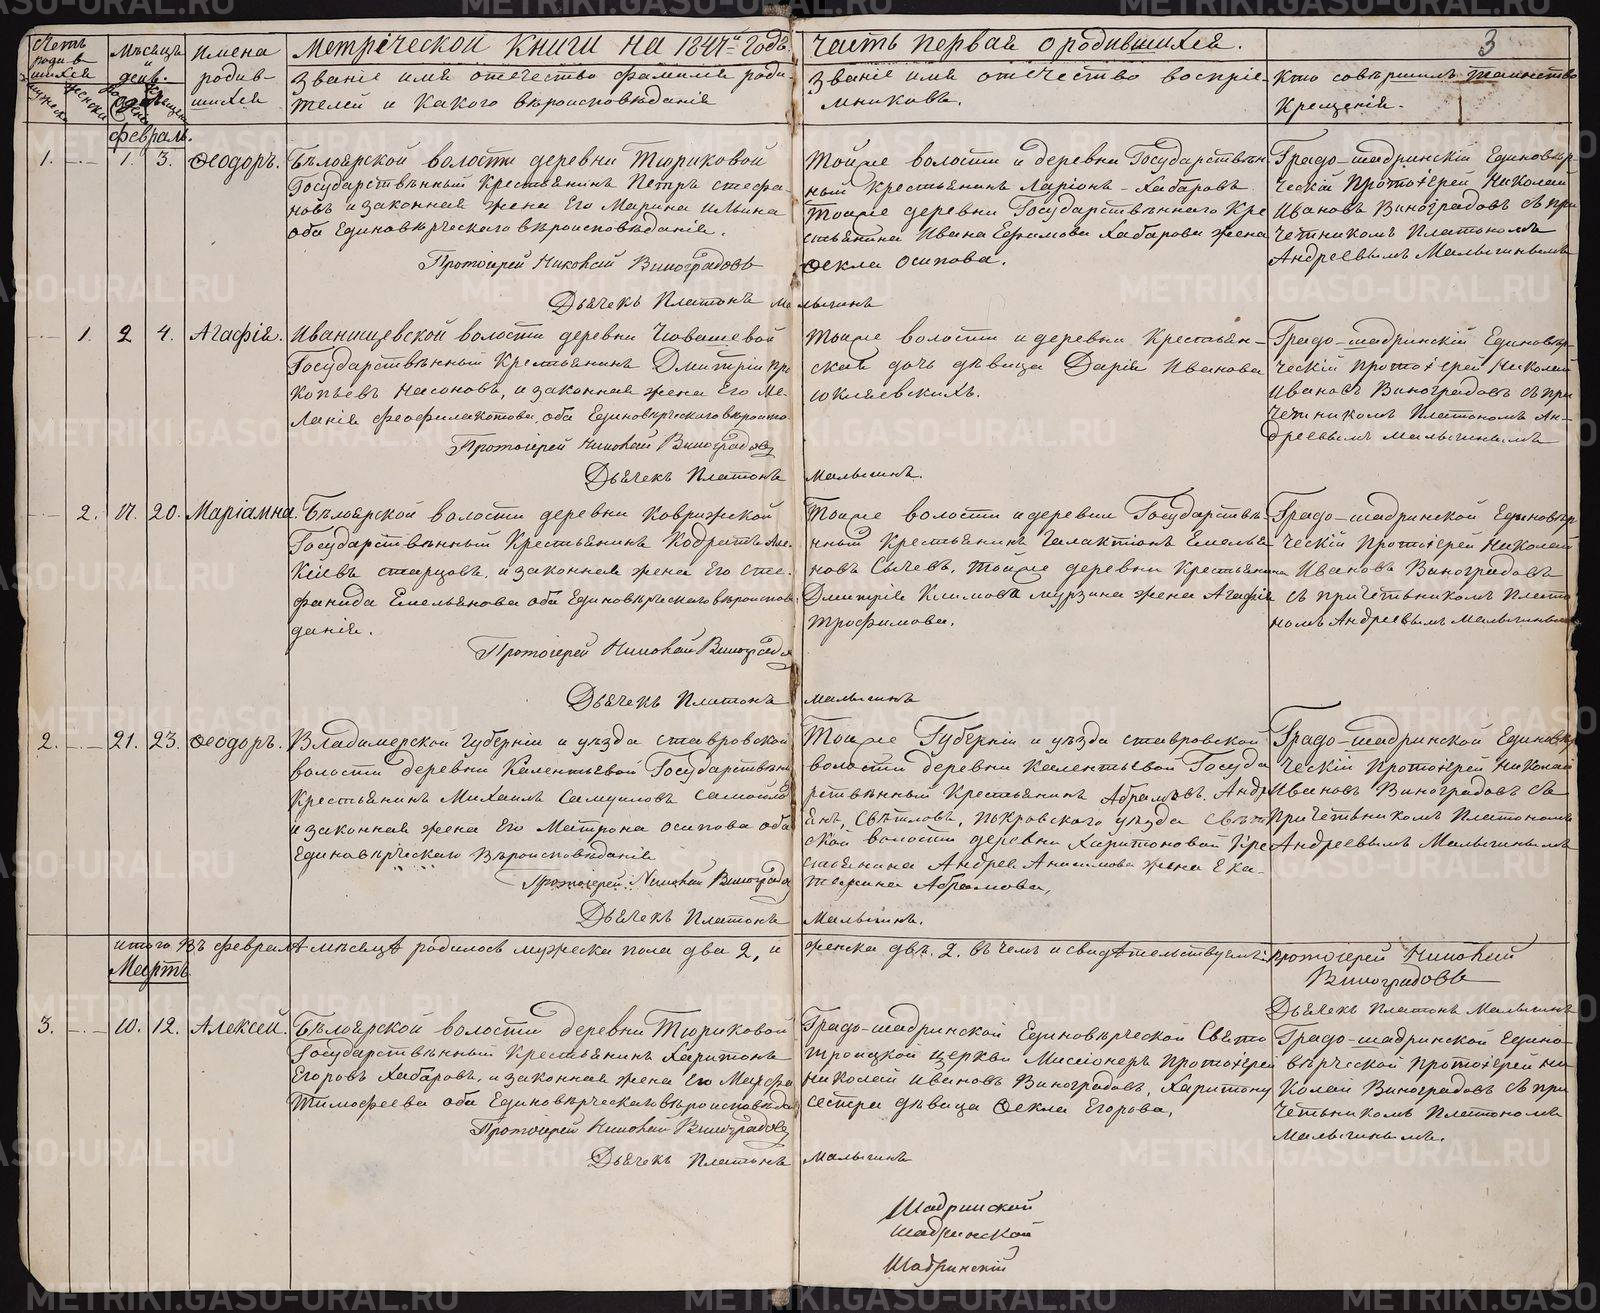 Метрической книги на 1847й Годъ.
Часть первая о родившихся.
3
Счетъ родившихся
мужеска
женска
Мѣсяцъ и день.
рожденія
крещенія
Имена родившихся
Званіе имя отечество фамилія роди-
телей и какого вѣроисповѣданія
Званіе имя отечество воспріе-
мниковъ.
Кто совѣршилъ таинство
Крещенія.
Февраль.
1. 1. 3. Ѳеодоръ.
Бѣлоярской волости деревни Тюриковой
Государствѣнный Крестьянинъ Петръ Стефа-
новъ и законная жена Его Марина Ильина
оба Единовѣрческаго вѣроисповѣданія.
Протоіерей Николай Виноградовъ
Дьячекъ Платонъ Малыгинъ
Тойже волости и деревни Государствѣн-
ный крестьянинъ Ларіонъ Хабаровъ
Тойже деревни Государствѣннаго Кре
стьянина Ивана Ефимова Хабарова жена
Ѳекла Осипова.
Градо-шадринскій Единовѣр-
ческій Протоіерей Николай
Ивановъ Виноградовъ съ при
четникомъ Платономъ
Андреевымъ Малыгинымъ
1. 2 4. Агафія.
Иванищевской волости деревни Чювашевой
Государствѣнный Крестьянинъ Дмитрій Про
копьевъ Насоновъ, и законная жена Его Ме-
ланія Феофилактова, оба Единовѣрческаго вѣроиспо
Протоіерей Николай Виноградовъ
Дьячекъ Платонъ Малыгинъ.
Тойже волости и деревни Крестьян-
ская дочь дѣвица Дарія Иванова
Градо-шадринскій Единовѣр-
ческій протоіерей Николай
Ивановъ Виноградовъ съ при
четникомъ Платономъ Ан-
дреевымъ Малыгинымъ
2. 17. 20. Маріамна.
Бѣлоярской волости деревни Коврижской
Государствѣнный Крестьянинъ Кодратъ
старцовъ, и законная жена Его Сте-
фанида Емельянова оба Единовѣрческаго вѣроисповѣ
данія.
Протоіерей Николай Виноградовъ
Дьячекъ Платонъ Малыгинъ
Тойже волости и деревни Государствѣ-
нный Крестьянинъ Галактіонъ Емелья
новъ Сычевъ, Тойже деревни Крестьянина
Дмитрія Климова мурзина жена Агафія
Трофимова.
Градо-шадринской Единовѣр
ческій Протоіерей Николай
Ивановъ Виноградовъ
съ причетьникомъ Плато
номъ Андреевымъ Малыгинымъ
2. 21. 23. Ѳеодоръ.
Владимерской Губерніи и уѣзда ставровской
волости деревни Калентьевой Государствѣн
Крестьянинъ Михаилъ Самуиловъ Самойло
и законная жена Его Матрона Осипова оба
Единовѣрческаго Вѣроисповѣданія
Протоіерей Николай Виноградовъ
Дьячекъ Платонъ Малыгинъ.
Тойже Губерніи и уѣзда ставровской
волости деревни Калентьевой Госуда
рствѣнный Крестьянинъ Абрамъ Андре
янъ, Свѣтловъ, Покровскаго уѣзда
ской волости деревни Харитоновой Кре
стьянина Андрея Анисимова жена Ека-
терина Абрамова,
Градо-шадринской Единовѣр
ческій Протоіерей Николай
Ивановъ Виноградовъ съ
Причетьникомъ Платономъ
Андреевымъ Малыгинымъ
итого Въ февралѣ мѣсяцѣ родилось мужеска пола два 2, и женска двѣ. 2. въ чемъ и свидѣтельствуемъ:
протоіерей Николай
Виноградовъ
Дьячекъ Платонъ Малыгинъ
Мартъ
3. 10. 12. Алексей.
Бѣлоярской волости деревни Тюриковой
Государствѣнный Крестьянинъ Харитонъ
Егоровъ Хабаровъ, и законная жена Его Марфа
Тимофеева оба Единовѣрческаго вѣроисповѣда
Протоіерей Николай Виноградовъ
Дьячекъ Платонъ Малыгинъ
Градо-шадринской Единовѣрческой Свято
троицкой Церкви Миссіонеръ протоіерей
Николай Ивановъ Виноградовъ, Харитону
сестра дѣвица Ѳекла Егорова,
Градо-шадринской Едино-
вѣрческой протоіерей Ни
колай Виноградовъ съ при
четьникомъ Платономъ
Малыгинымъ.
Шадринской
шадринской
Шадринскій
METRIKI.GASO-URAL.RU